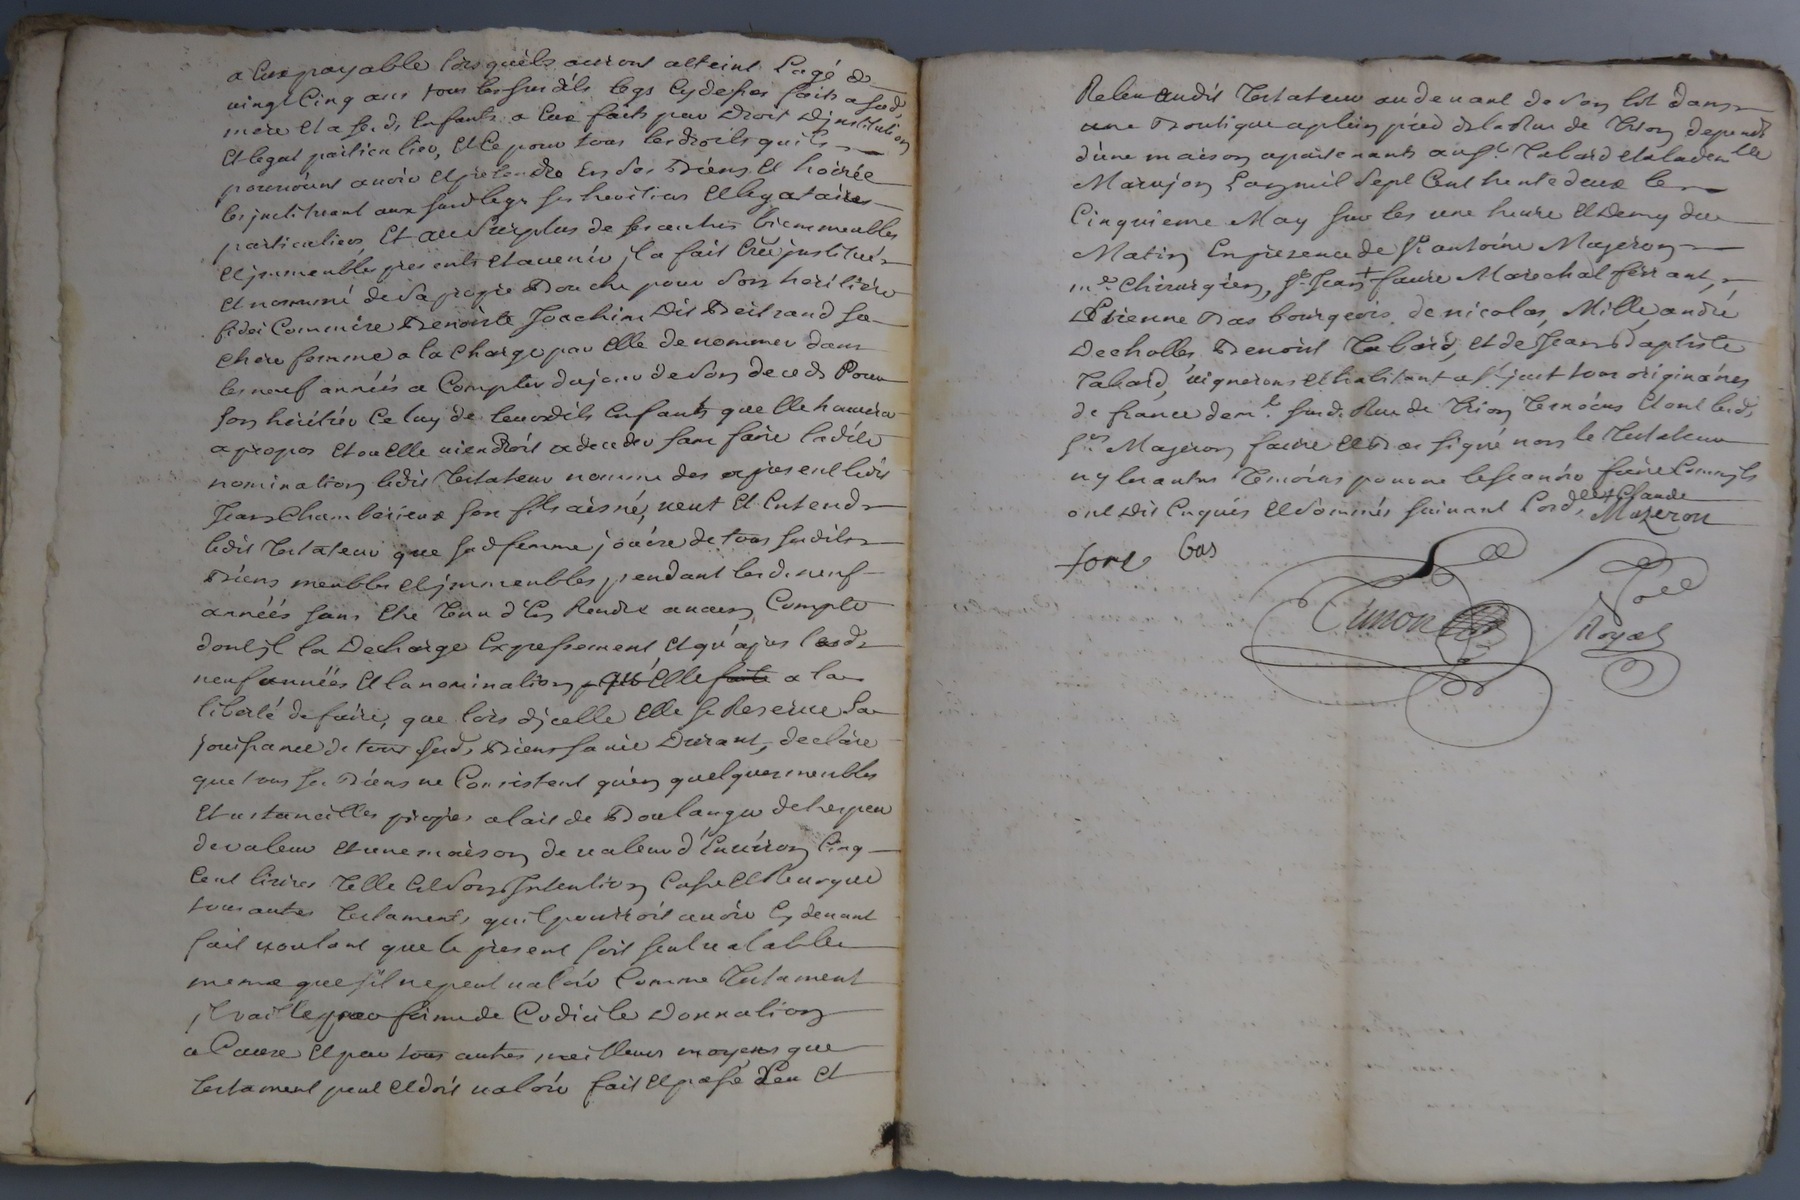 a Eux payable lors quils auront atteint Lagé de
vingt Cinq ans tous lessusdits legs Cy dessus faits a sad.
mere et a ses d. Enfants a Eux faits par Droit Dinstitution
et legat particulier, et Ce pour tous les droits quils
pouroient avoir et pretendre En ses Biens et hoirée
les instituant aux susd legs ses heritiers et legataires
particuliers, Et au Surplus de ses autres biens meubles
et jmmeubles presents et avenir jl a fait Créé jnstitué
et nommé de sa propre Bouche pour Son heritiere
fideï Commire Benoite Joachim Dit Bertrand sa
chere femme a la Charge par Elle de nommer dans
les neuf années a Compter dujour de Son deceds Pour
son héritier Celuy de leursdits Enfants que Elle havisera
apropos et ou Elle viendroit adeceder sans faire ladite
nomination ledit Testateur nomme des apresent ledit
Jean Chambeireux son fils aisné, veut et Entend
ledit Testateur que sad femme jouire de tous susdits
Biens meubles et jmmeubles pendant lesd. neuf
années sans Etre Tenu d'En Rendre aucun Compte
dont jl la Decharge Expressement et qu'apres lesd
neuf années et la nomination qu'Elle a la
liberté de faire, que lors dicelle Elle se Reserve la
jouissance de tous sesd. Biens sa vie Durant, declare
que tous ses Biens ne Consistent qu'en quelques meubles
et ustancilles propres alart de Boulanger de tres peu
de valeur et une maison de valeur d'Environ Cinq
Cent livres Telle est son Intention Casse et Revoque
tous autres testaments quil pourroit avoir Cy devant
fait voulant que le present soit seul valable
meme que sil ne peut valoir Comme Testament
jl vaille par forme de Codicile Donnation
a Cause et par tous autres meilleurs moyens que
testament peut et doit valoir fait et passé Leu et
Releu audit Testateur au devant de son lit dans
une Boutique aplein pied de la Rue de Trion dependt
d'une maison apartenants au sr. Tabard et a la den.lle
Marujon Lan mil sept Cent trente deux le
Cinquieme May sur les une heure et Demy du
Matin En presence de Sr. antoine Mazeron
me. Chirurgien, Sr. Jean + faure Marechal ferrant,
Etienne Bas bourgeois, de nicolas, Mille, andré
Decholles Benoist Tabard, et de Jean Baptiste
Tabard, vignerons et habitant a St. just tous originaires
de france dem.t susd. Rue de Trion Temoins et ont lesd.
Srs. Mazeron faure et Bas signé non le Testateur
ny les autres Temoins pour ne le scavoir faire Comm'jls
ont Dit Enquis et Sommés suivant Lord.
+ Claude
Mazeron
fore Bas
Simon
Royal